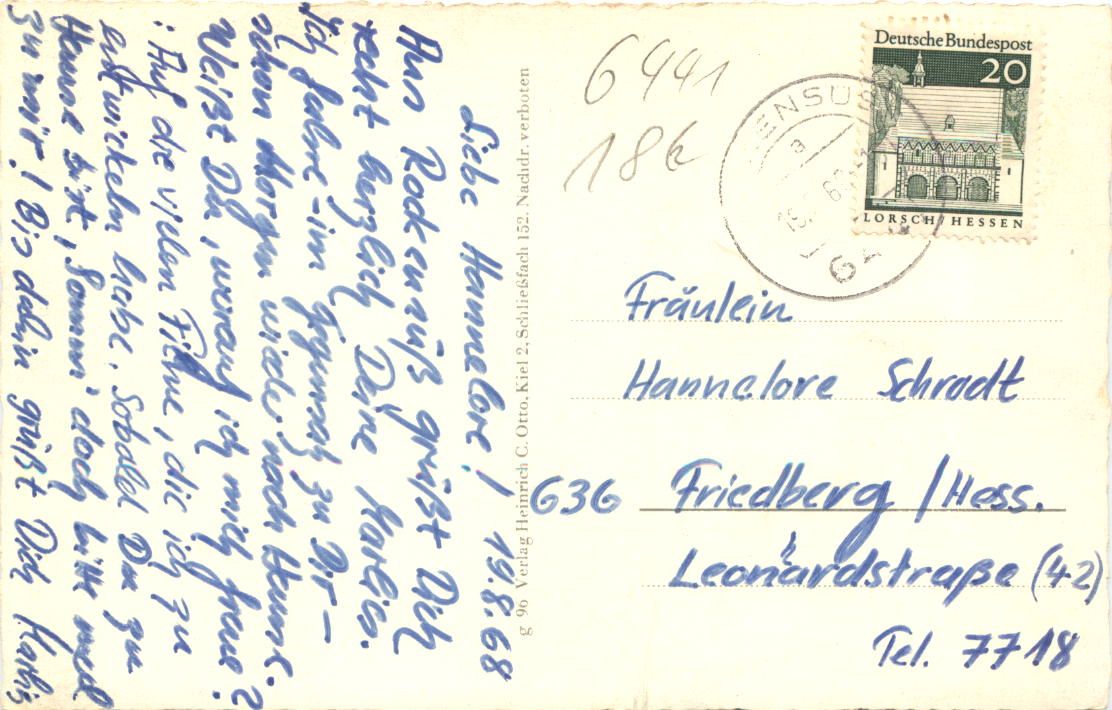 Liebe Hannelore! 19.8.68
Aus Rockenuß grüßt Dich
recht herzlich Deine Karlia.
Ich fahre im zu Dr—
schon Morgen wieder nach Hause.
Weißt Du, worauf ich mich freue?
: Auf die vielen Filme, die ich zu
entwickeln habe. Sobald Du zu
Hause bist, komm' doch bitte mal
zu mir! Bis dahin grüßt Dich
g 96 Verlag Heinrich C. Otto, Kiel 2, Schließfach 152. Nachdr. verboten
6441
18k
Deutsche Bundespost
20
LORSCH/HESSEN
Fräulein
Hannelore Schradt
636 Friedberg /Hess.
Leonhardstraße (42)
Tel. 7718